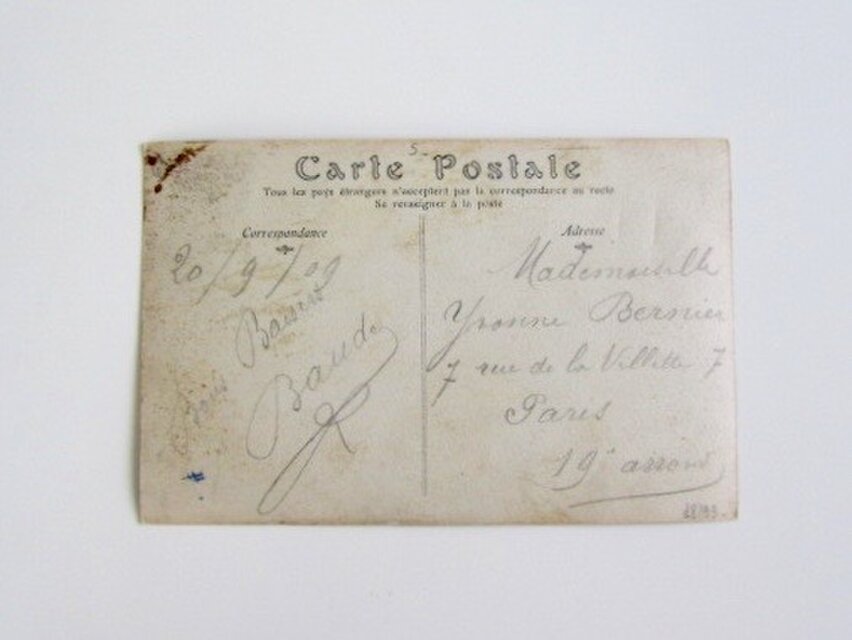 5-
Carte Postale
Tous les pays étrangers n'acceptent pas la correspondance au recto
Se renseigner à la poste
Correspondance
20/9/09
Bons Baisers
Baude
Adresse
Mademoiselle
Yvonne Bernier
7 rue de la Villette 7
Paris
19e arrond